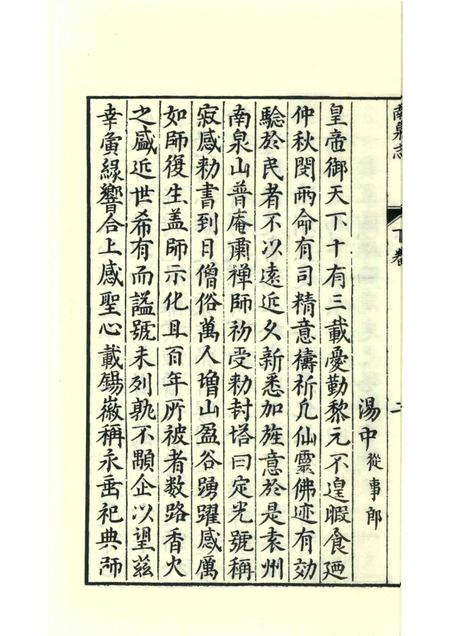 南泉志
下卷
二
湯中從事郎
皇帝御天下十有三載憂勤黎元不遑暇食廼
仲秋閔雨命有司精意禱祈凡仙靈佛迹有効
驗於民者不以遠近久新悉加旌意於是袁州
南泉山普庵肅禪師初受勑封塔曰定光號稱
寂感勑書到日僧俗萬人增山盈谷踴躍感厲
如師復生盖師示化且百年所被者数路香火
之盛近世希有而謚號未列孰不顒企以望兹
幸夤緣響合上感聖心載錫徽稱永垂祀典師